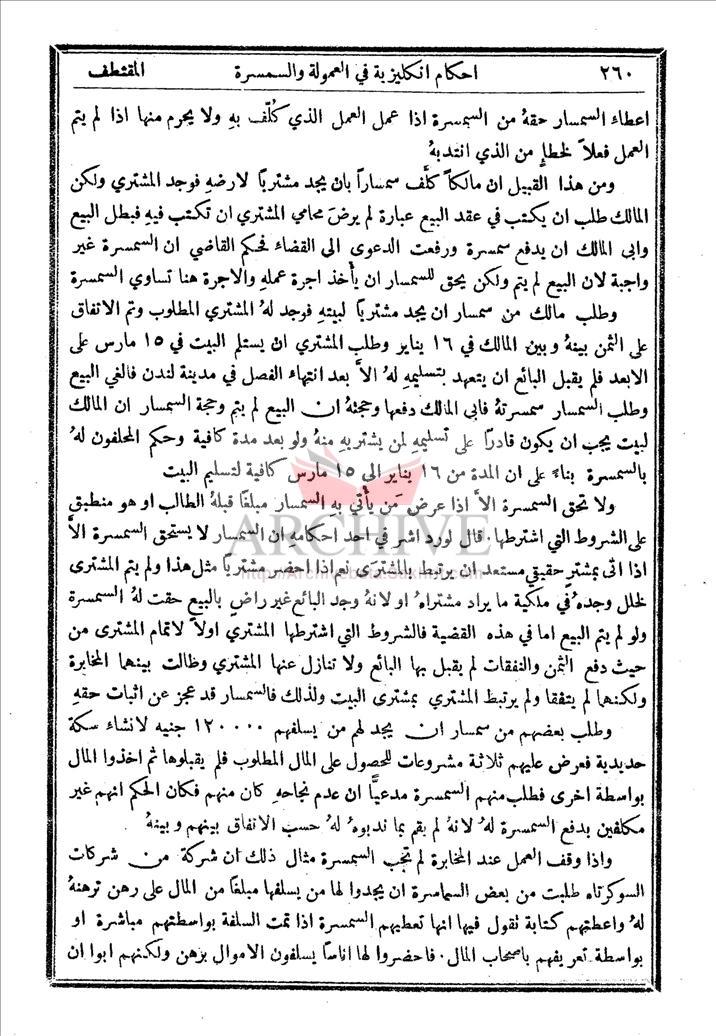 ٢٦٠ احكام انكليزية في العمولة والسمسرة المقتطف
اعطاء السمسار حقهُ من السمسرة اذا عمل العمل الذي كُلّف بهِ ولا يحرم منها اذا لم يتم
العمل فعلاً لخطإٍ من الذي انتدبهُ
ومن هذا القبيل ان مالكاً كلَّف سمساراً بان يجد مشترياً لارضهِ فوجد المشتري ولكن
المالك طلب ان يكتب في عقد البيع عبارة لم يرضَ محامي المشتري ان تكتب فيهِ فبطل البيع
وابى المالك ان يدفع سمسرة ورفعت الدعوى الى القضاء فحكم القاضي ان السمسرة غير
واجبة لان البيع لم يتم ولكن يحق للسمسار ان يأخذ اجرة عملهِ والاجرة هنا تساوي السمسرة
وطلب مالك من سمسار ان يجد مشترياً لبيتهِ فوجد لهُ المشتري المطلوب وتم الاتفاق
على الثمن بينهُ وبين المالك في ١٦ يناير وطلب المشتري ان يستلم البيت في ١٥ مارس على
الابعد فلم يقبل البائع ان يتعهد بتسليمهِ لهُ الاَّ بعد انتهاء الفصل في مدينة لندن فالغي البيع
وطلب السمسار سمسرتهُ فابى المالك دفعها وحجتهُ ان البيع لم يتم وحجة السمسار ان المالك
لبيت يجب ان يكون قادراً على تسليمهِ لمن يشتريهِ منهُ ولو بعد مدة كافية وحكم المحلفون لهُ
بالسمسرة بناءً على ان المدة من ١٦ يناير الى ١٥ مارس كافية لتسليم البيت
ولا تحق السمسرة الاَّ اذا عرض مَن يأتي بهِ السمسار مبلغاً قبلهُ الطالب او هو منطبق
على الشروط التي اشترطها. قال لورد اشر في احد احكامهِ ان السمسار لا يستحق السمسرة الاَّ
اذا اتى بمشترٍ حقيقي مستعد ان يرتبط بالمشترَى نعم اذا احضر مشترياً مثل هذا ولم يتم المشترى
لخلل وجدهُ في ملكية ما يراد مشتراهُ او لانهُ وجد البائع غير راضٍ بالبيع حقت لهُ السمسرة
ولو لم يتم البيع اما في هذه القضية فالشروط التي اشترطها المشتري اولاً لاتمام المشترى من
حيث دفع الثمن والنفقات لم يقبل بها البائع ولا تنازل عنها المشتري وظالت بينهما المخابرة
ولكنهما لم يتفقا ولم يرتبط المشتري بمشترى البيت ولذلك فالسمسار قد عجز عن اثبات حقهِ
وطلب بعضهم من سمسار ان يجد لهم من يسلفهم ١٢٠٠٠٠ جنيه لانشاء سكة
حديدية فعرض عليهم ثلاثة مشروعات للحصول على المال المطلوب فلم يقبلوها ثم اخذوا المال
بواسطة اخرى فطلب منهم السمسرة مدعياً ان عدم نجاحهِ كان منهم فكان الحكم انهم غير
مكلفين بدفع السمسرة لهُ لانهُ لم يقم بما ندبوهُ لهُ حسب الاتفاق بينهم وبينهُ
واذا وقف العمل عند المخابرة لم تجب السمسرة مثال ذلك ان شركة من شركات
السوكرتاه طلبت من بعض السماسرة ان يجدوا لها من يسلفها مبلغاً من المال على رهن ترهنهُ
لهُ واعطتهم كتابة تقول فيها انها تعطيهم السمسرة اذا تمت السلفة بواسطتهم مباشرة او
بواسطة تعريفهم باصحاب المال. فاحضروا لها اناساً يسلفون الاموال برهن ولكنهم ابوا ان
ARCHIVE